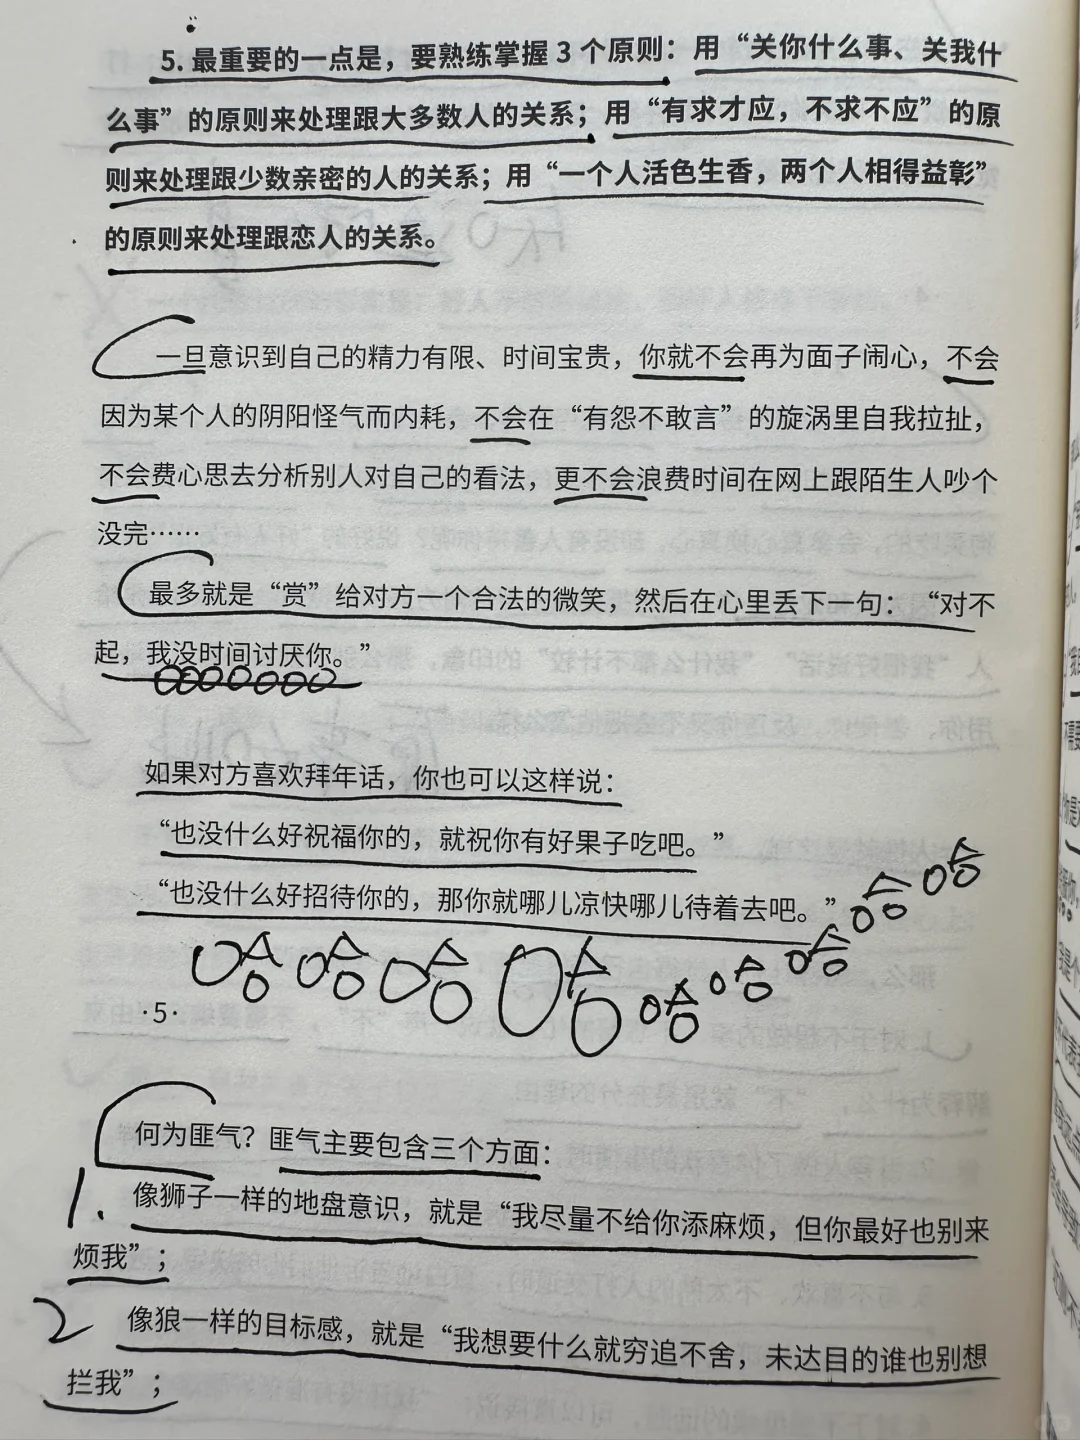 5. 最重要的一点是，要熟练掌握 3 个原则：用“关你什么事、关我什
么事”的原则来处理跟大多数人的关系；用“有求才应，不求不应”的原
则来处理跟少数亲密的人的关系；用“一个人活色生香，两个人相得益彰”
的原则来处理跟恋人的关系。
一旦意识到自己的精力有限、时间宝贵，你就不会再为面子闹心，不会
因为某个人的阴阳怪气而内耗，不会在“有怨不敢言”的旋涡里自我拉扯，
不会费心思去分析别人对自己的看法，更不会浪费时间在网上跟陌生人吵个
没完……
最多就是“赏”给对方一个合法的微笑，然后在心里丢下一句：“对不
起，我没时间讨厌你。”
如果对方喜欢拜年话，你也可以这样说：
“也没什么好祝福你的，就祝你有好果子吃吧。”
“也没什么好招待你的，那你就哪儿凉快哪儿待着去吧。”
·5·
何为匪气？匪气主要包含三个方面：
1. 像狮子一样的地盘意识，就是“我尽量不给你添麻烦，但你最好也别来
烦我”；
2 像狼一样的目标感，就是“我想要什么就穷追不舍，未达目的谁也别想
拦我”；